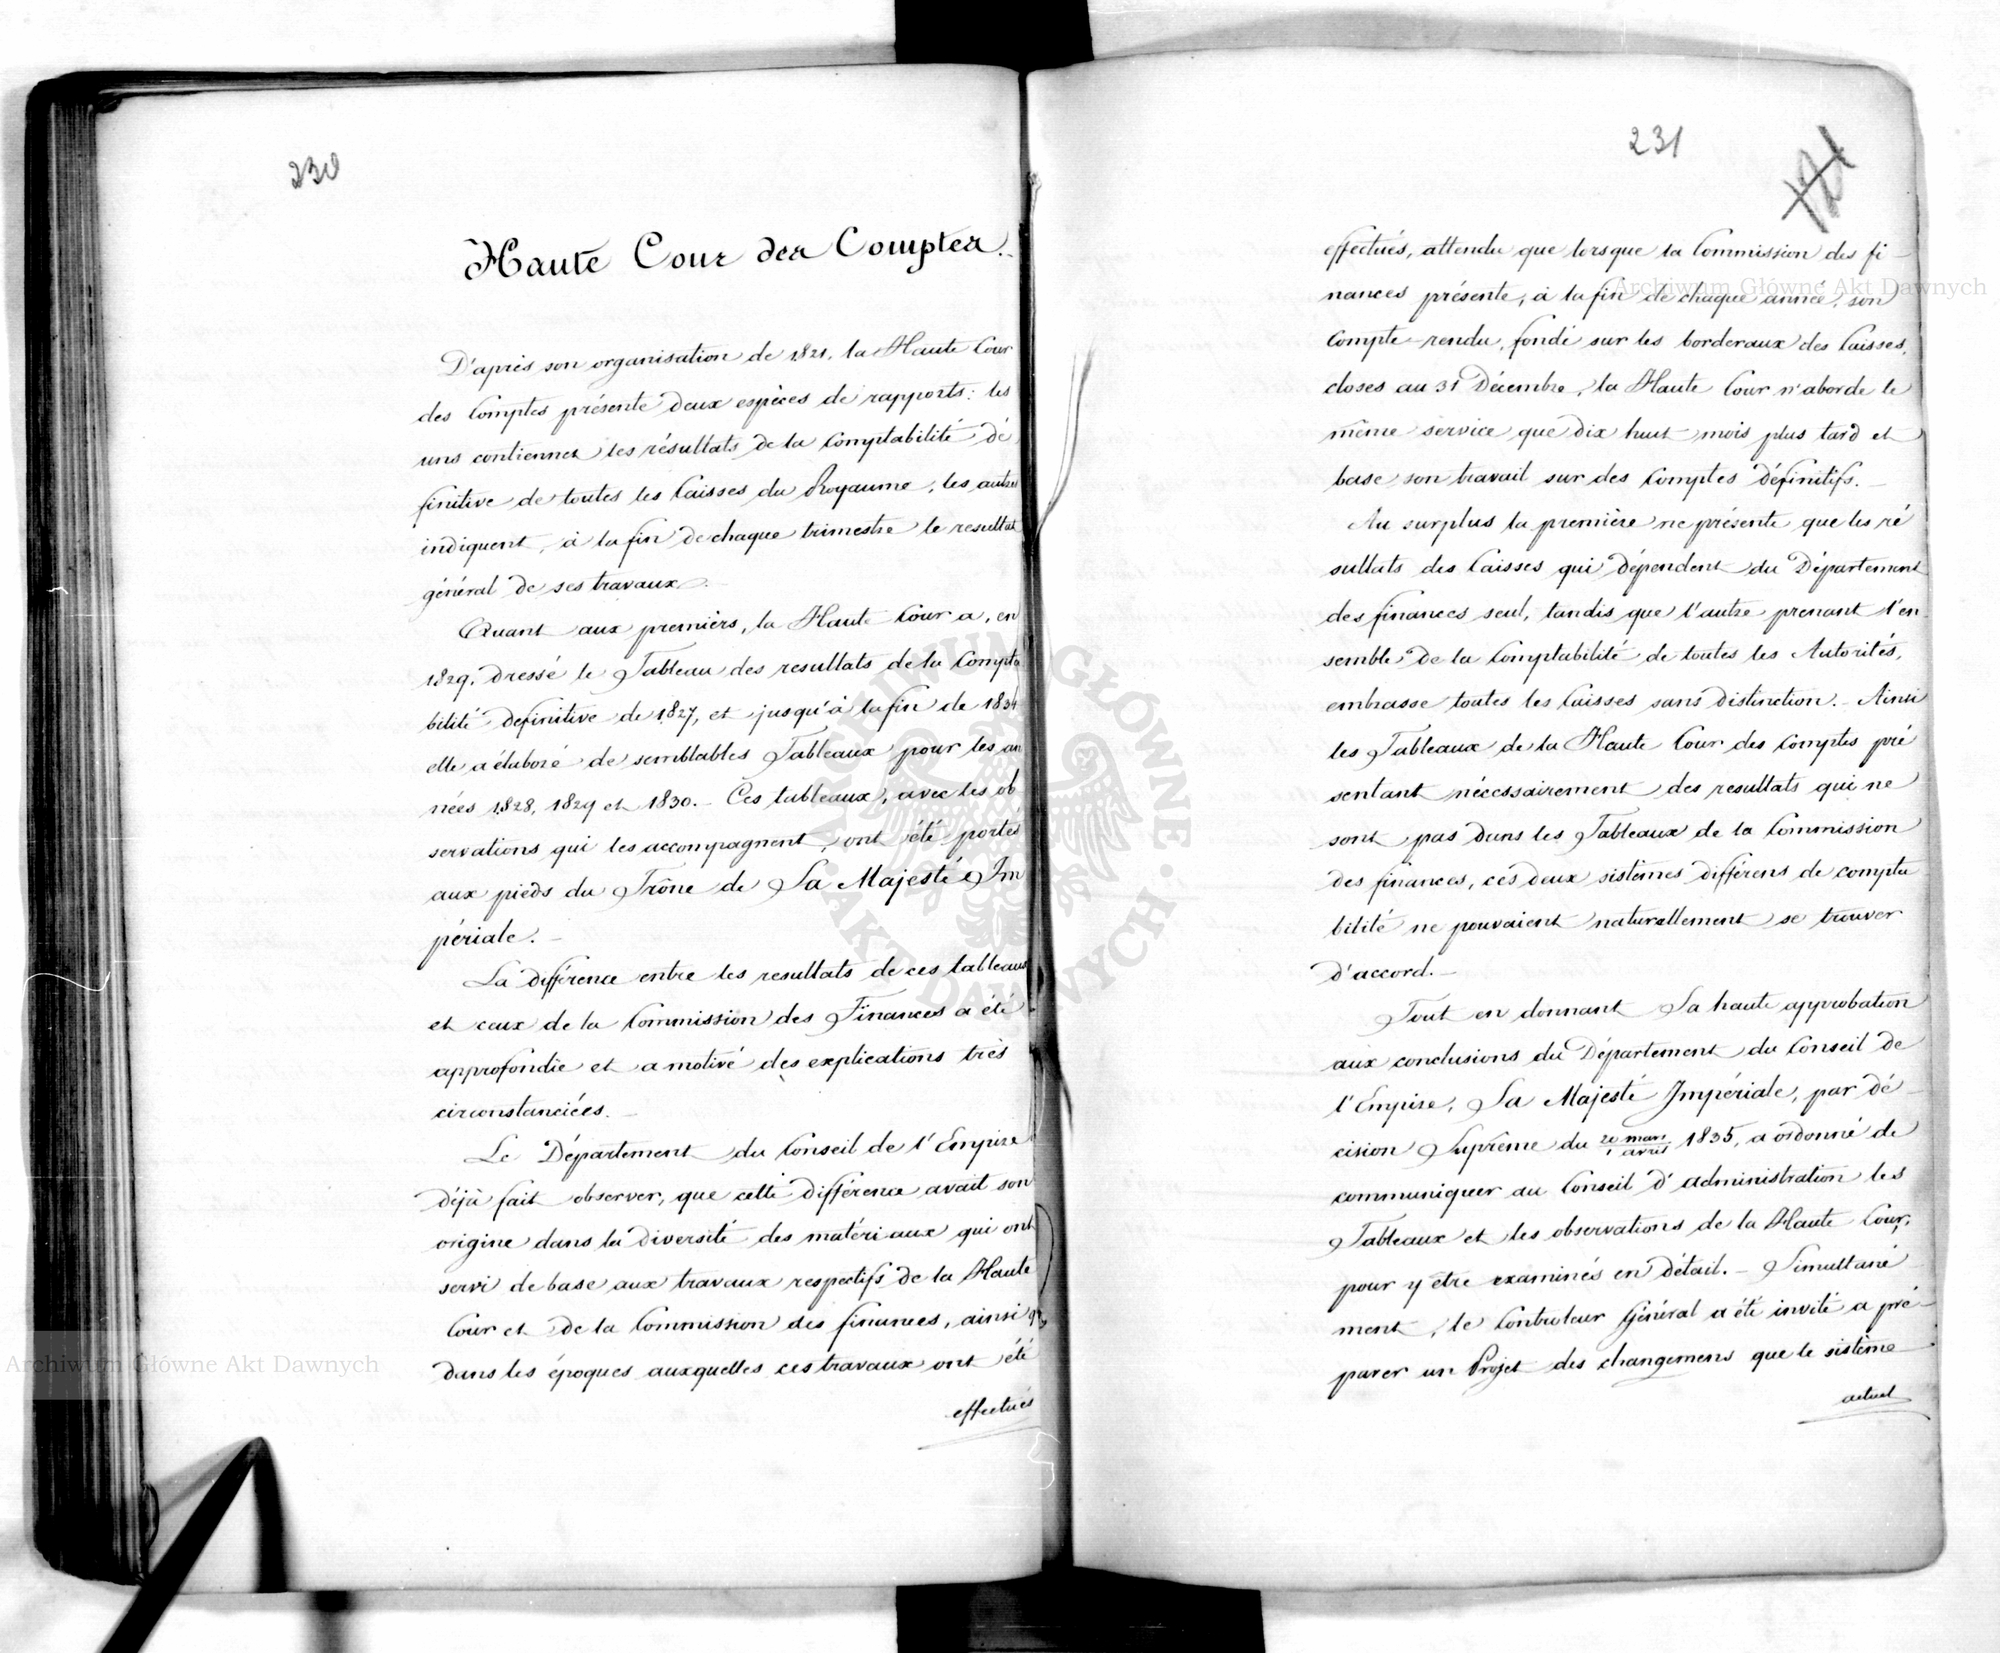 230
Haute Cour des Comptes.
D'après son organisation de 1821, la Haute Cour
des Comptes présente deux espèces de rapports: les
uns contiennent les résultats de la Comptabilité dé
finitive de toutes les Caisses du Royaume, les autres
indiquent, à la fin de chaque trimestre le resultat
général de ses travaux.
Quant aux premiers, la Haute Cour a, en
1829, dressé le Tableau des resultats de la Compta
bilité définitive de 1827, et jusqu'à la fin de 1834
elle a élaboré de semblables Tableaux pour les an
nées 1828, 1829 et 1830. Ces tableaux, avec les ob
servations qui les accompagnent, ont été portés
aux pieds du Trône de Sa Majesté Im
périale.
La différence entre les resultats de ces tableaux
et ceux de la Commission des Finances a été
approfondie et a motivé des explications très
circonstanciées.
Le Département du Conseil de l'Empire
déjà fait observer, que cette différence avait son
origine dans la diversité des matériaux qui ont
servi de base aux travaux respectifs de la Haute
Cour et de la Commission des finances, ainsi que
dans les époques auxquelles ces travaux ont été
effectués
231
121
effectués, attendu que lorsque la Commission des fi
nances présente, à la fin de chaque année, son
Compte-rendu, fondé sur les bordereaux des Caisses,
closes au 31 Décembre, la Haute Cour n'aborde le
même service que dix huit mois plus tard et
base son travail sur des Comptes définitifs.
Au surplus la première ne présente que les ré
sultats des Caisses qui dépendent du Département
des finances seul, tandis que l'autre prenant l'en
semble de la Comptabilité de toutes les Autorités,
embrasse toutes les Caisses sans distinction. Ainsi
les Tableaux de la Haute Cour des Comptes pré
sentant nécessairement des resultats qui ne
sont pas dans les Tableaux de la Commission
des finances, ces deux sistèmes différens de compta
bilité ne pouvaient naturellement se trouver
d'accord.
Tout en donnant Sa haute approbation
aux conclusions du Département du Conseil de
l'Empire, Sa Majesté Impériale, par dé
cision Suprême du 20 mars/1 avril 1835, a ordonné de
communiquer au Conseil d'administration les
Tableaux et les observations de la Haute Cour,
pour y être examinés en détail. Simultané
ment, le Controleur Général a été invité a pré
parer un Projet des changemens que le sistème
actuel
Archiwum Główne Akt Dawnych
Archiwum Główne Akt Dawnych
ARCHIWUM GŁÓWNE AKT DAWNYCH